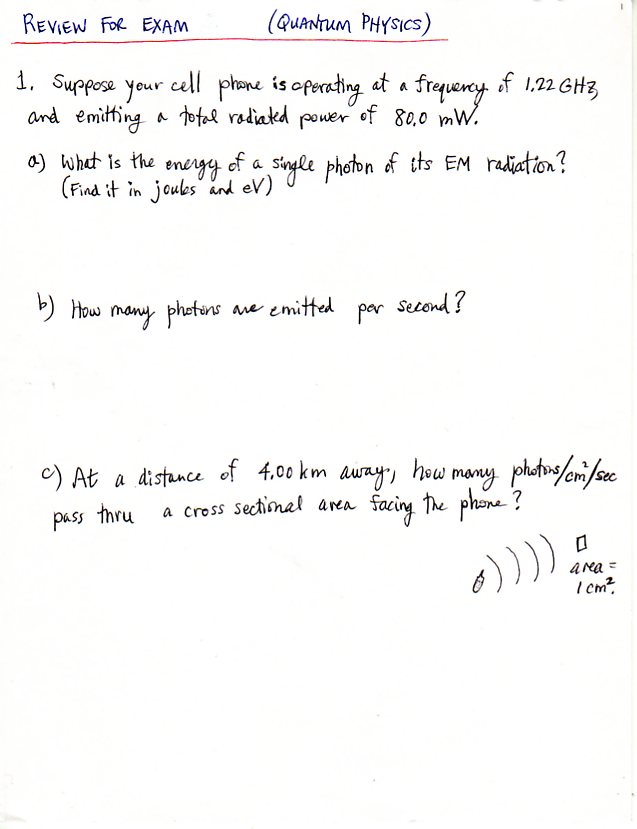 REVIEW FOR EXAM (QUANTUM PHYSICS)
1. Suppose your cell phone is operating at a frequency of 1.22 GHz
and emitting a total radiated power of 80.0 mW.
a) What is the energy of a single photon of its EM radiation?
(Find it in joules and eV)
b) How many photons are emitted per second?
c) At a distance of 4.00 km away, how many photons/cm²/sec
pass thru a cross sectional area facing the phone?
area =
1 cm².